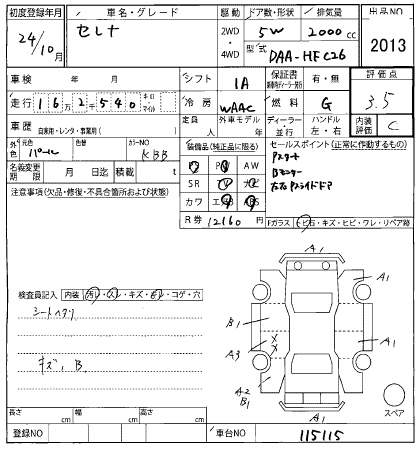 初度登録年月 車名・グレード 駆動 ドア数・形状 排気量 出品NO
24/10月 セレナ 2WD・4WD 5W 2000cc 2013
型式 DAA-HFC26
車検 年 月 シフト IA 保証書 有・無 評価点
走行 162540 キロ・マイル 冷房 WAAC 燃料 G 3.5
車歴 自家用・レンタ・事業用( ) 定員 人 外車モデル 年 ディーラー・並行 ハンドル 左・右 内装評価 C
外色 元色 パール 色替 カラーNO KBB 装備品(純正品に限る) セールスポイント(正常に作動するもの)
名義変更期限 月 日迄 積載 t P AW Pスタート
SR TV ナビ Bモニター
カワ エアB ABS 左右Pスライドドア
注意事項(欠品・修復・不具合箇所および状態) R券 12160円
Fガラス トビ石・キズ・ヒビ・ワレ・リペア跡
検査員記入 内装 汚レ・スレ・キズ・モレ・コゲ・穴
シートヘタリ
キズ、B.
A1
A1 A1
B1
A3 XX A1
A2
B1
A1
スペア
長さ cm 幅 cm 高さ cm
登録NO 車台NO 115115